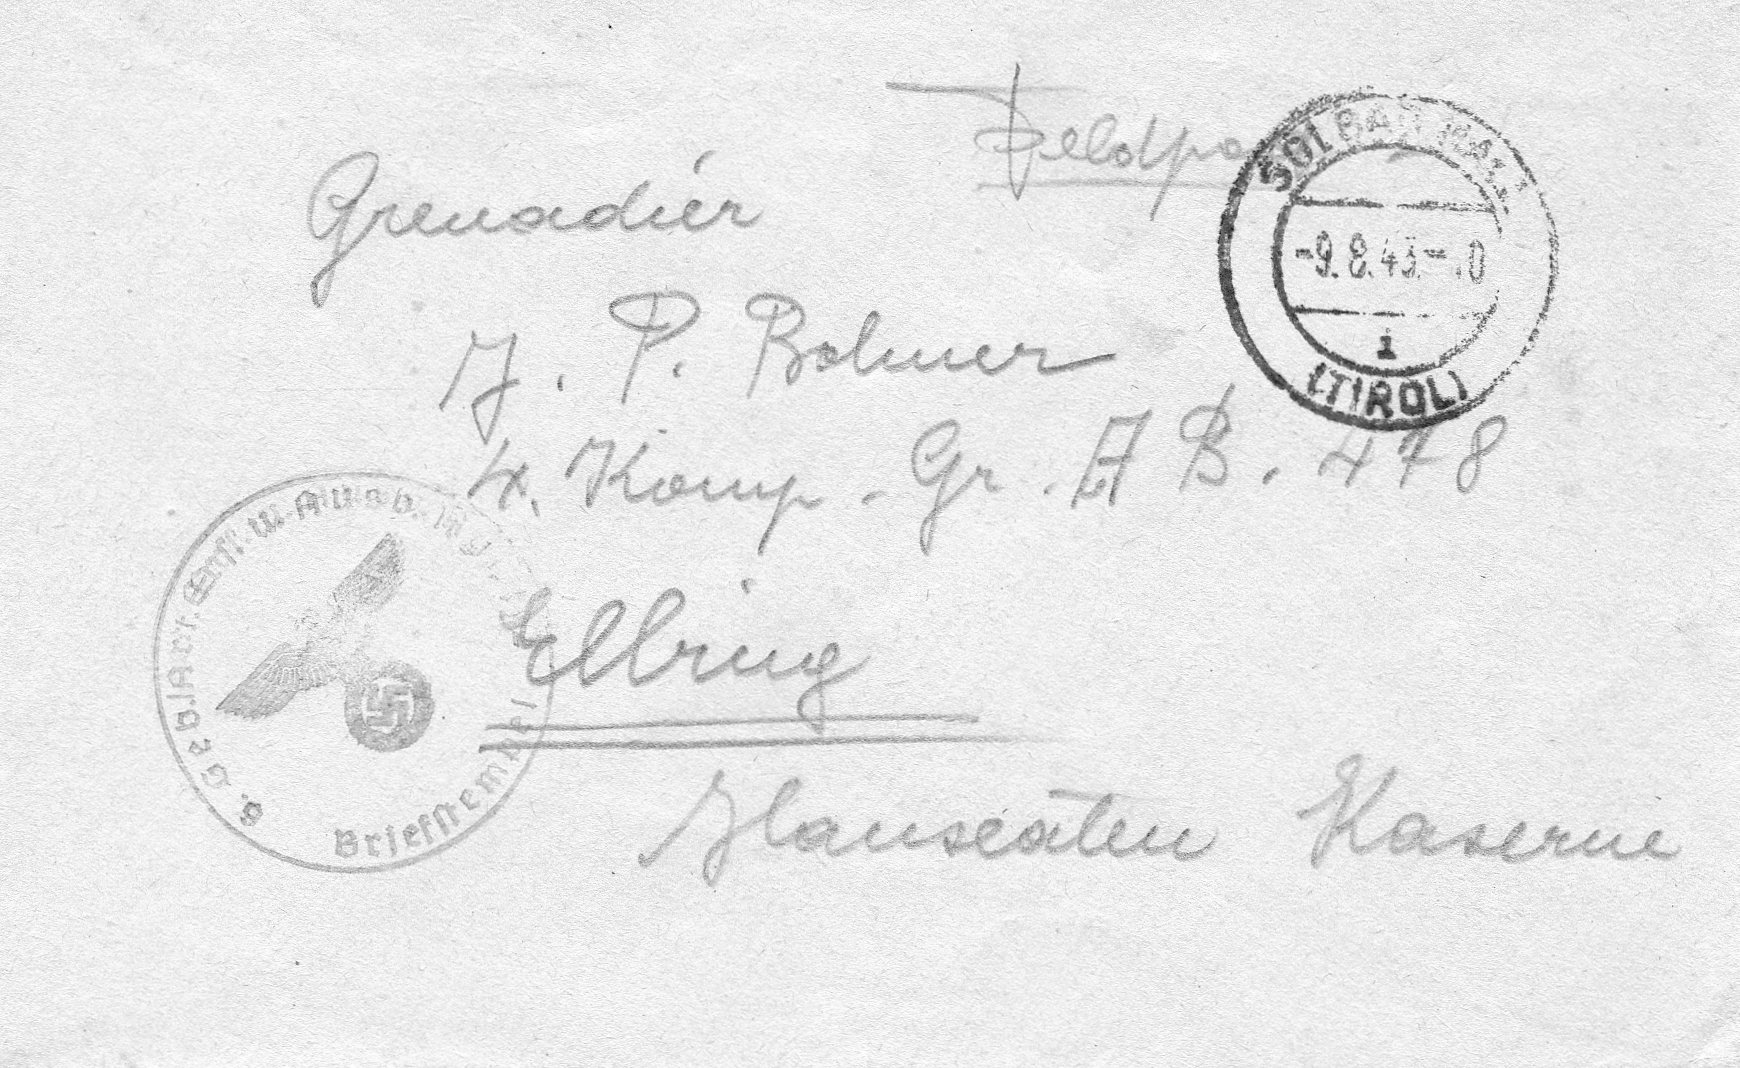 Feldpo
SOLBAD HALL
-9.8.43.-.0
1
(TIROL)
Grenadier
J. P. Bolmer
4. Komp. Gr. B. 478
Elbing
Hanseaten Kaserne
Briefstempel